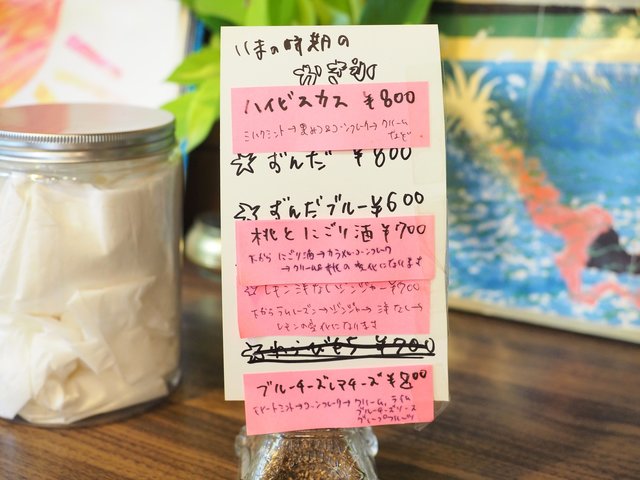 いまの時期の
かき氷
ハイビスカス ¥800
ミルクミント→黒みつ&コーンフレーク→クリーム
など
☆ ずんだ ¥800
☆ ずんだブルー ¥600
桃とにごり酒 ¥700
下から にごり酒→カラメルコーンフレーク
→クリーム&桃の変化になります
☆ レモン洋なしジンジャー ¥700
下からラムレーズン→ジンジャー→洋なし→
レモンの変化になります
☆ わらびもち ¥700
ブルーチーズレアチーズ ¥800
ミント→コーンフレーク→クリーム、ライム
ブルーチーズソース
グレープフルーツ